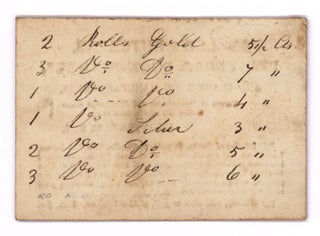 2 Rolls Gold 5/ Cts.
3 Do Do 7 "
1 Do Do 4 "
1 Do Silver 3 "
2 Do Do 5 "
3 Do Do 6 "